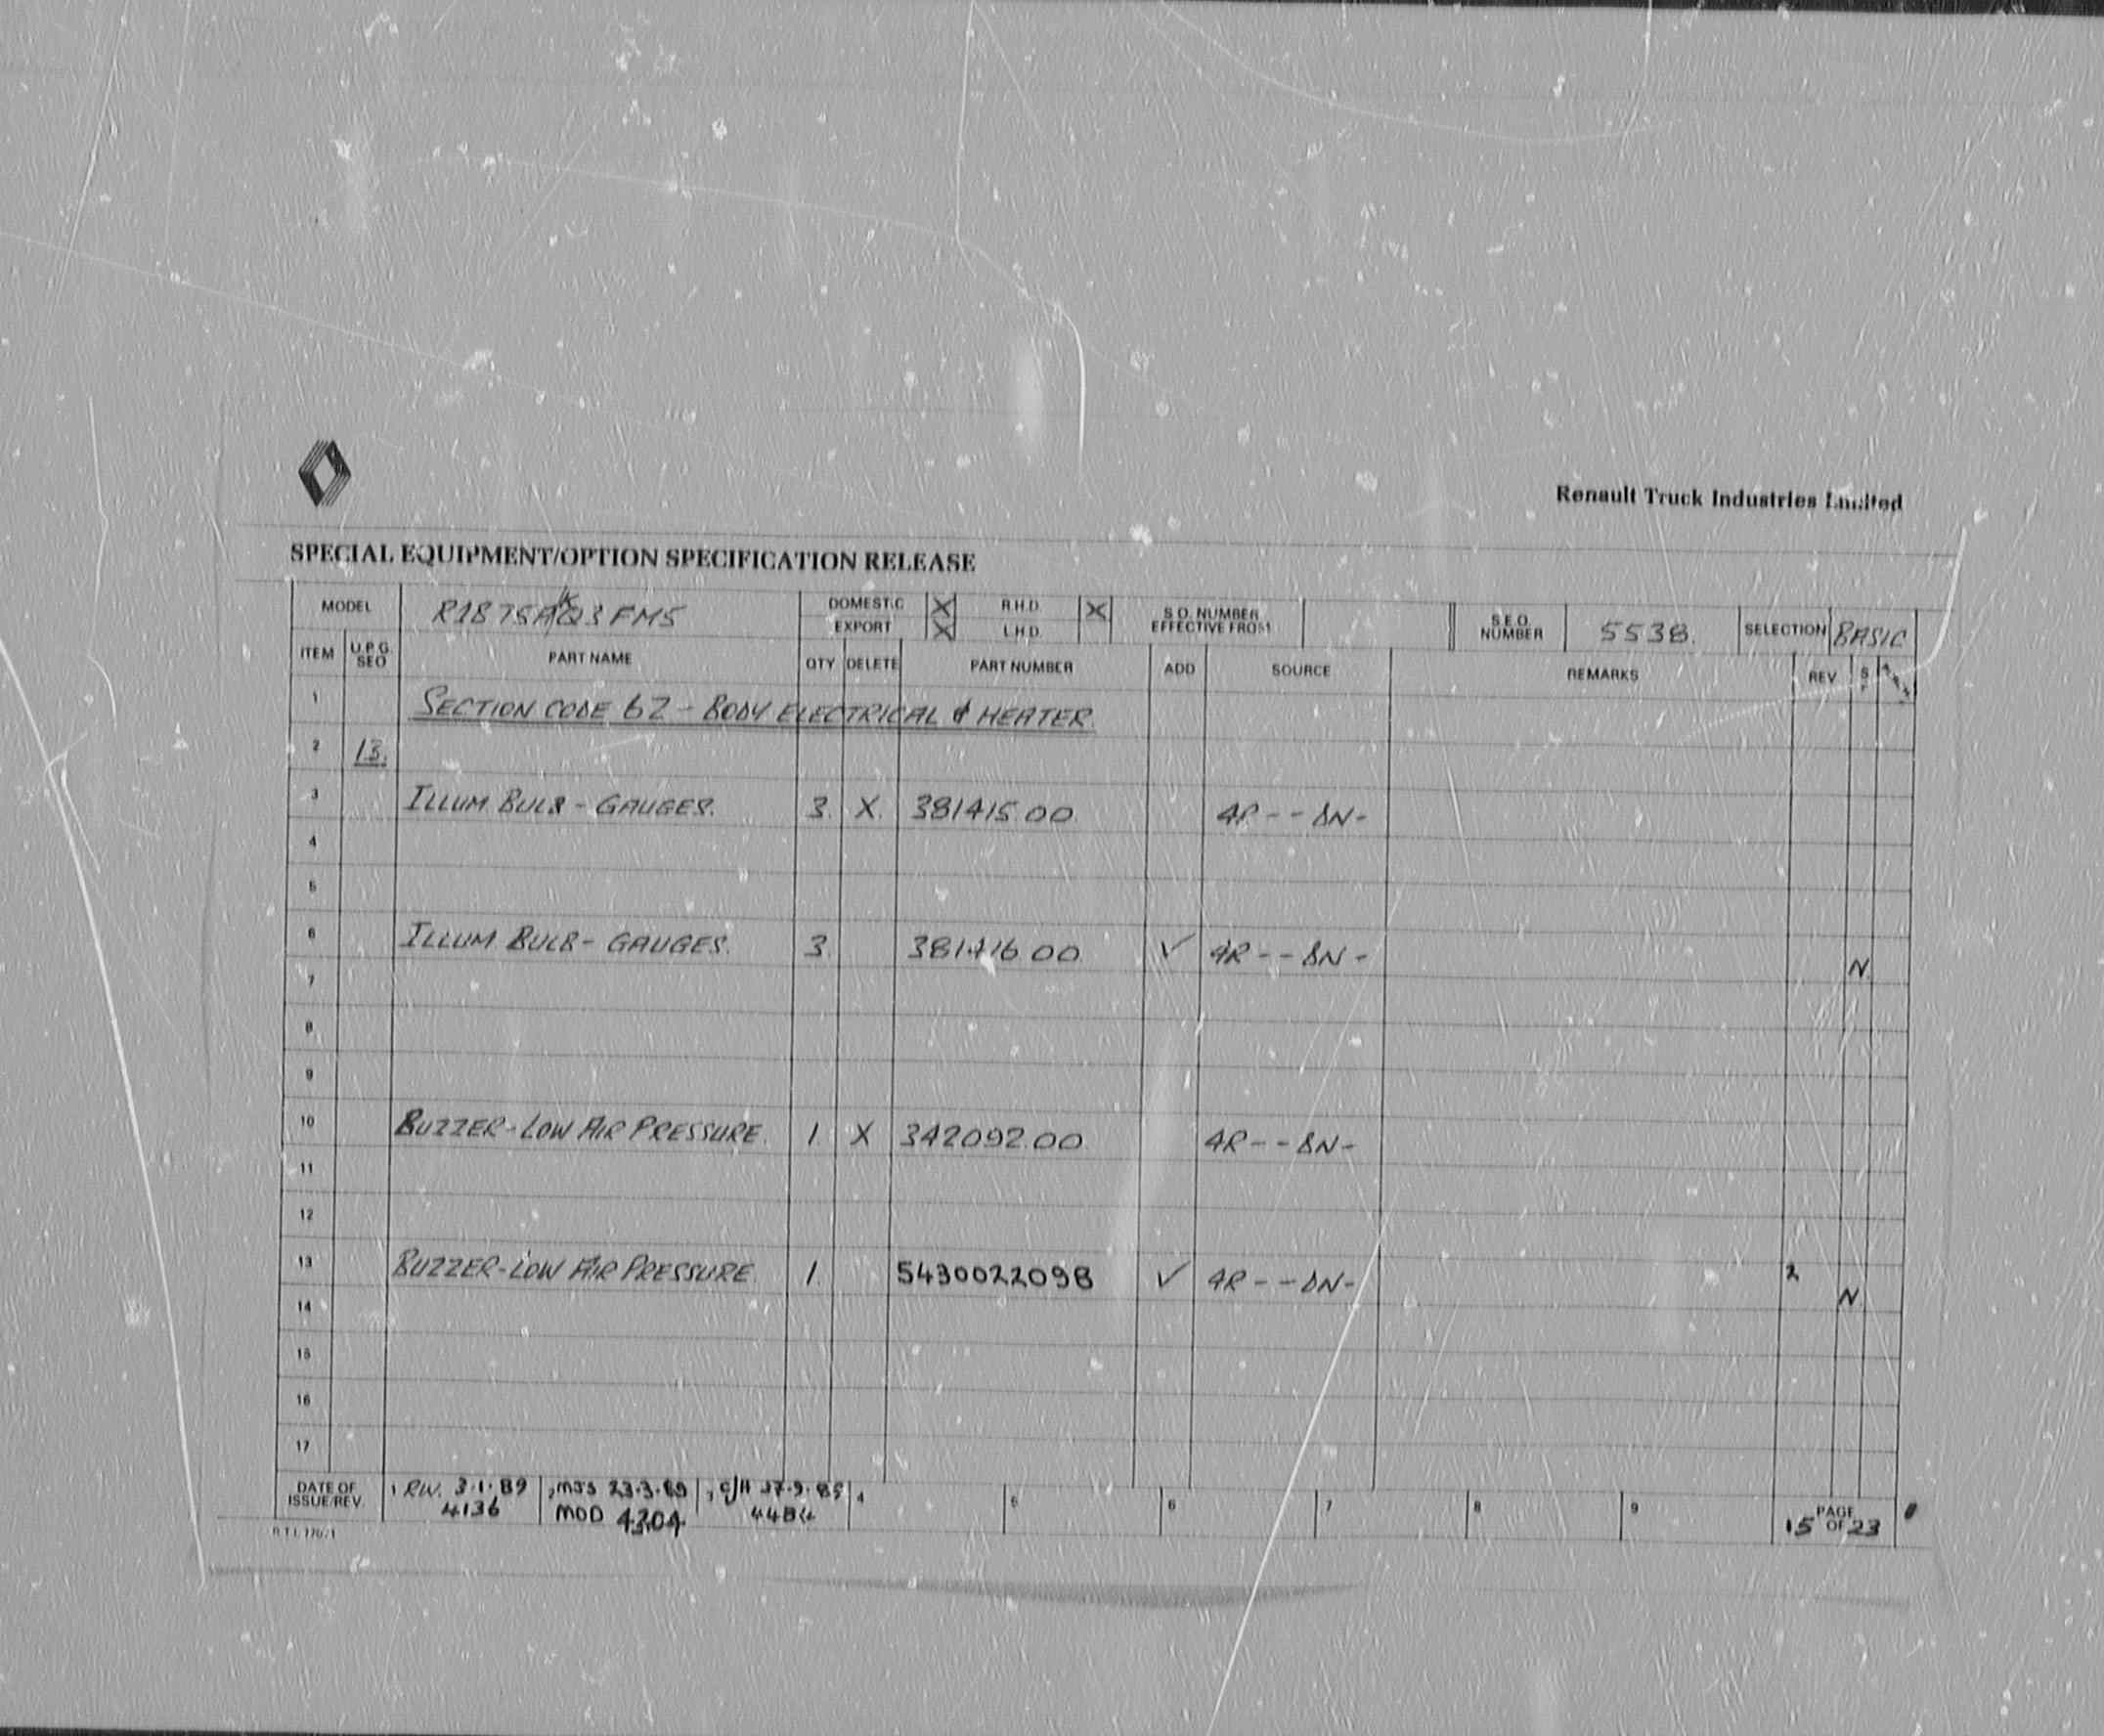 Renault Truck Industries Limited
SPECIAL EQUIPMENT/OPTION SPECIFICATION RELEASE
MODEL R1875A Q3 FM5 DOMESTIC X R.H.D. X S.O. NUMBER EFFECTIVE FROM S.E.O. NUMBER 5538. SELECTION BASIC
EXPORT X L.H.D.
ITEM U.P.G. SEO PART NAME QTY DELETE PART NUMBER ADD SOURCE REMARKS REV
1 SECTION CODE 62 - BODY ELECTRICAL & HEATER.
2 13.
3 ILLUM BULB - GAUGES. 3. X. 381415.00 4R - - BN -
4
5
6 ILLUM BULB - GAUGES. 3. 381416.00 ✓ 4R - - BN - N.
7
8
9
10 BUZZER - LOW AIR PRESSURE. 1. X 342092.00 4R - - BN -
11
12
13 BUZZER - LOW AIR PRESSURE. 1. 5430022098 ✓ 4R - - BN - 2 N.
14
15
16
17
DATE OF ISSUE/REV. 1 RW. 3.1.89 4136 2 MJS 23.3.89 MOD 4304 3 4484 4 5 6 7 8 9 15 PAGE OF 23